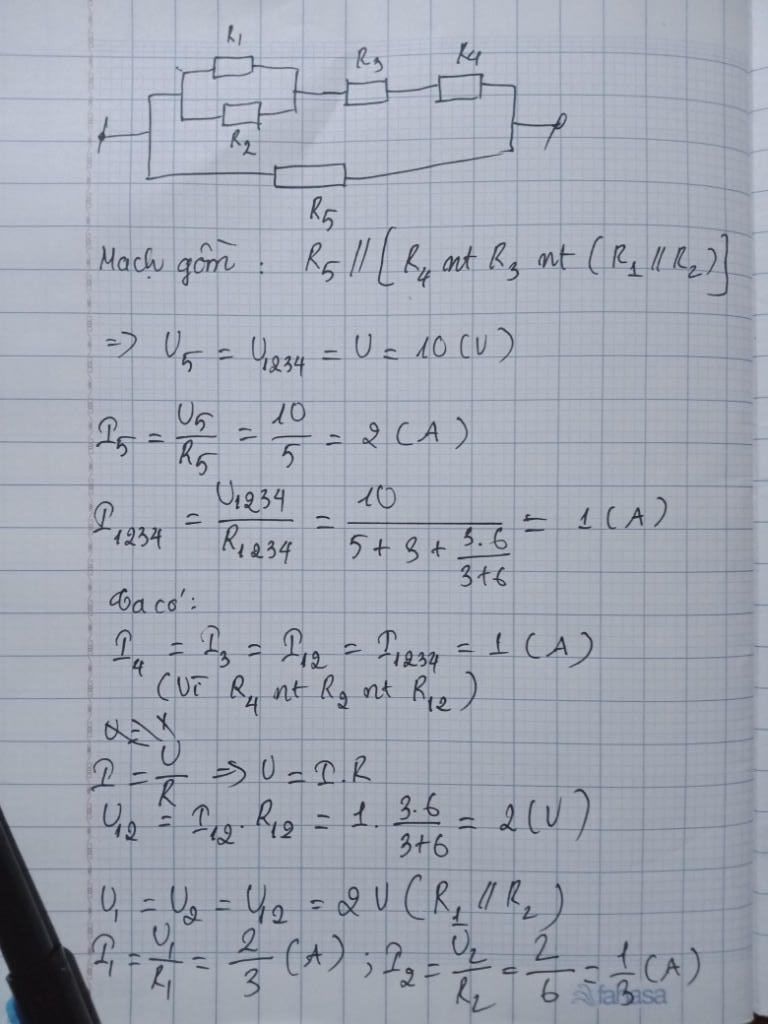 R1
R3
R4
R2
R5
Mạch gồm : R5 // [R4 nt R3 nt (R1 // R2)]
=> U5 = U1234 = U = 10 (V)
I5 = U5/R5 = 10/5 = 2 (A)
I1234 = U1234/R1234 = 10/(5 + 3 + 3.6/(3+6)) = 1 (A)
Ta có:
I4 = I3 = I12 = I1234 = 1 (A)
(Vì R4 nt R2 nt R12)
I = U/R => U = I.R
U12 = I12. R12 = 1. 3.6/(3+6) = 2 (V)
U1 = U2 = U12 = 2V (R1 // R2)
I1 = U1/R1 = 2/3 (A) ; I2 = U2/R2 = 2/6 = 1/3 (A)
fahasa